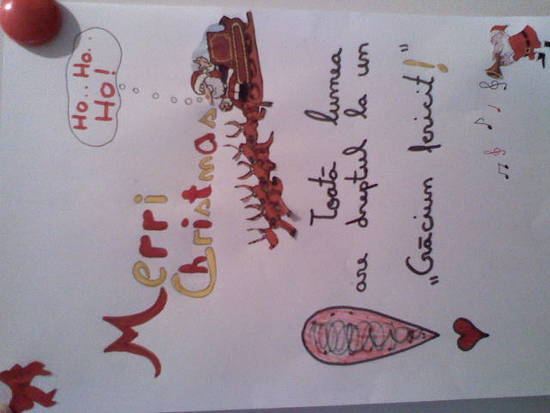 Ho.. Ho..
Ho!
Merri
Christmas
Toată lumea
are dreptul la un
"Crăciun fericit!"